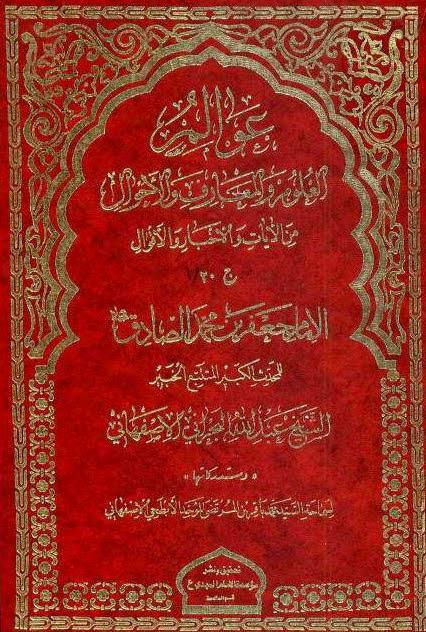 عوالم
العلوم والمعارف والأحوال
من الآيات والأخبار والأقوال
ج ٢٠
الإمام جعفر بن محمد الصادق
للمحدث الكبير المتتبع الخبير
الشيخ عبد الله البحراني الإصفهاني
«ومستدركاتها»
لسماحة السيد محمد باقر بن المرتضى الموحد الأبطحي الإصفهاني
تحقيق ونشر
مؤسسة الإمام المهدي ع